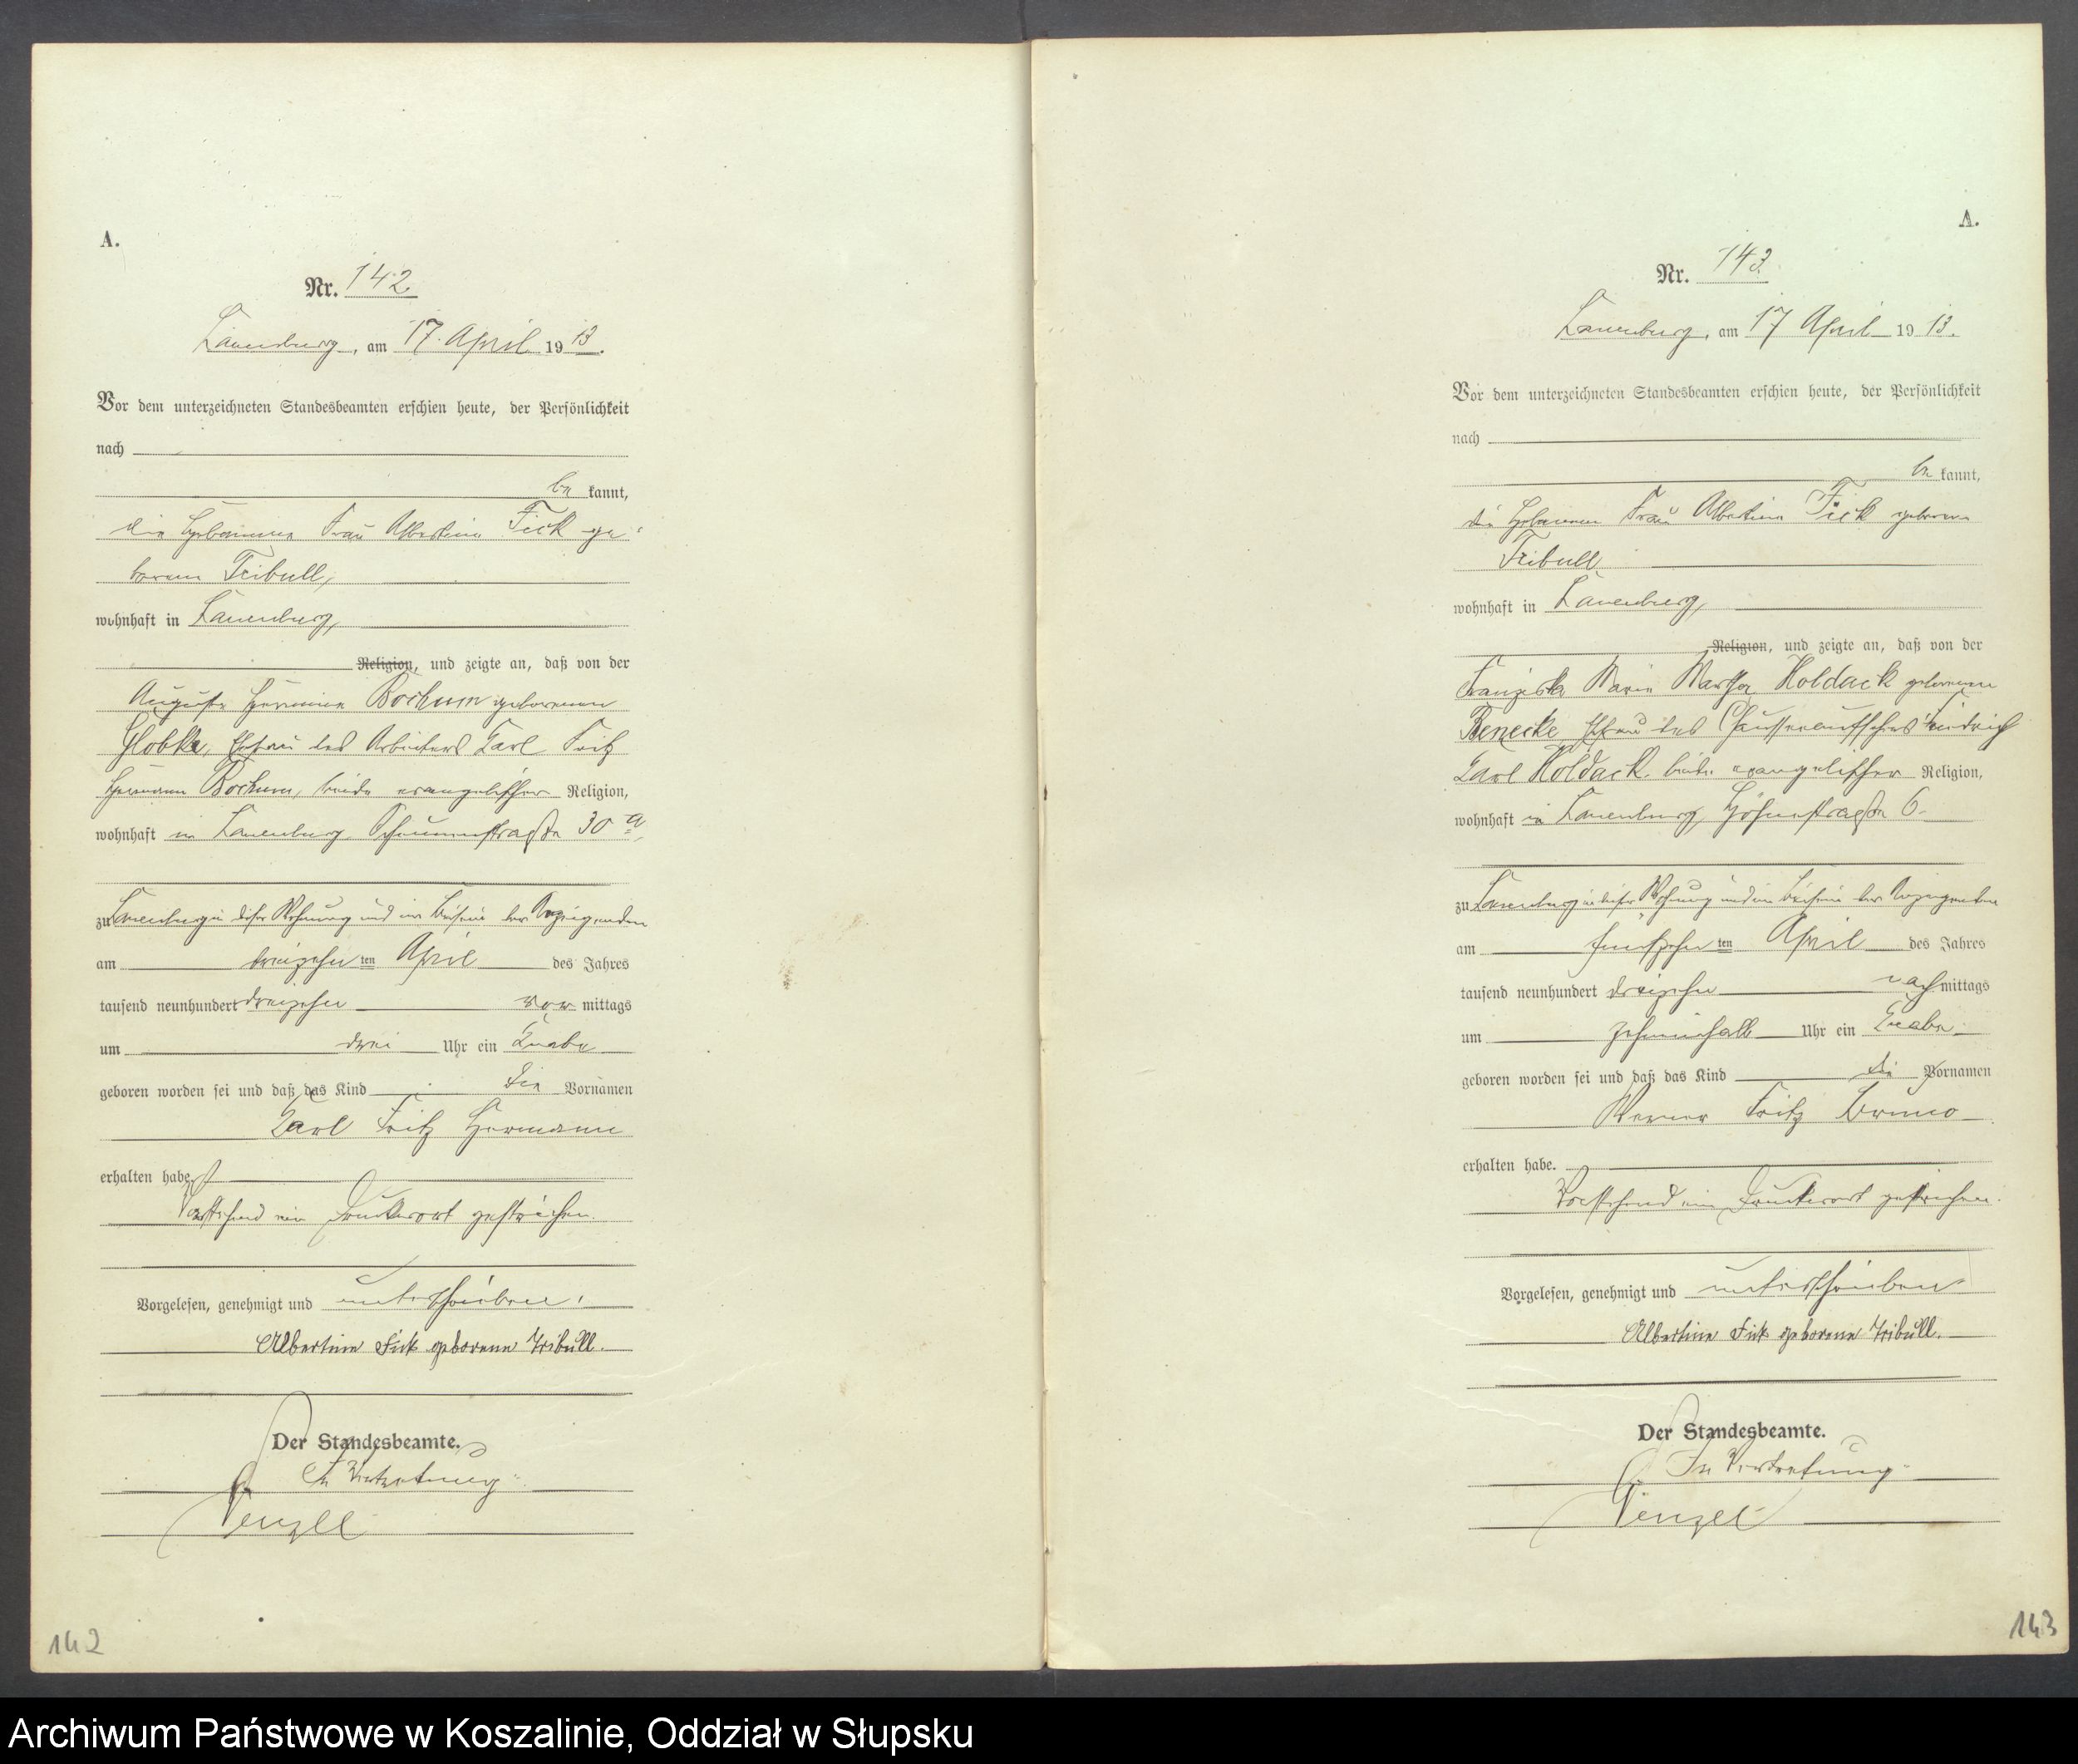 A.
Nr. 142
Lauenburg, am 17. April 1913.
Vor dem unterzeichneten Standesbeamten erschien heute, der Persönlichkeit
nach
be kannt,
die Hebamme Frau Albertine Fick ge-
borene Tribull,
wohnhaft in Lauenburg,
Religion, und zeigte an, daß von der
Auguste Hermine Borkum geborenen
Globke, Ehefrau des Arbeiters Carl Fritz
Hermann Borkum, beide evangelischer Religion,
wohnhaft in Lauenburg, Scheunenstraße 30 a,
zu Lauenburg in dieser Wohnung und im Beisein der Anzeigenden
am dreizehnten April des Jahres
tausend neunhundert dreizehn vormittags
um drei Uhr ein Knabe
geboren worden sei und daß das Kind die Vornamen
Carl Fritz Hermann
erhalten habe.
Vorstehend ein Druckwort gestrichen.
Vorgelesen, genehmigt und unterschrieben.
Albertine Fick geborene Tribull.
Der Standesbeamte.
In Vertretung
142
A.
Nr. 143.
Lauenburg, am 17 April 1913.
Vor dem unterzeichneten Standesbeamten erschien heute, der Persönlichkeit
nach
be kannt,
die Hebamme Frau Albertine Fick geborene
Tribull,
wohnhaft in Lauenburg,
Religion, und zeigte an, daß von der
Franziska Marie Martha Holdack geborenen
Benecke Ehefrau des Chausseeaufsehers Friedrich
Carl Holdack, beide evangelischer Religion,
wohnhaft in Lauenburg, Höhenstraße 6.
zu Lauenburg in dieser Wohnung und im Beisein der Anzeigenden
am fünfzehnten April des Jahres
tausend neunhundert dreizehn nachmittags
um zehneinhalb Uhr ein Knabe
geboren worden sei und daß das Kind die Vornamen
Werner Fritz Bruno
erhalten habe.
Vorstehend ein Druckwort gestrichen.
Vorgelesen, genehmigt und unterschrieben
Albertine Fick geborene Tribull.
Der Standesbeamte.
In Vertretung.
143
Archiwum Państwowe w Koszalinie, Oddział w Słupsku